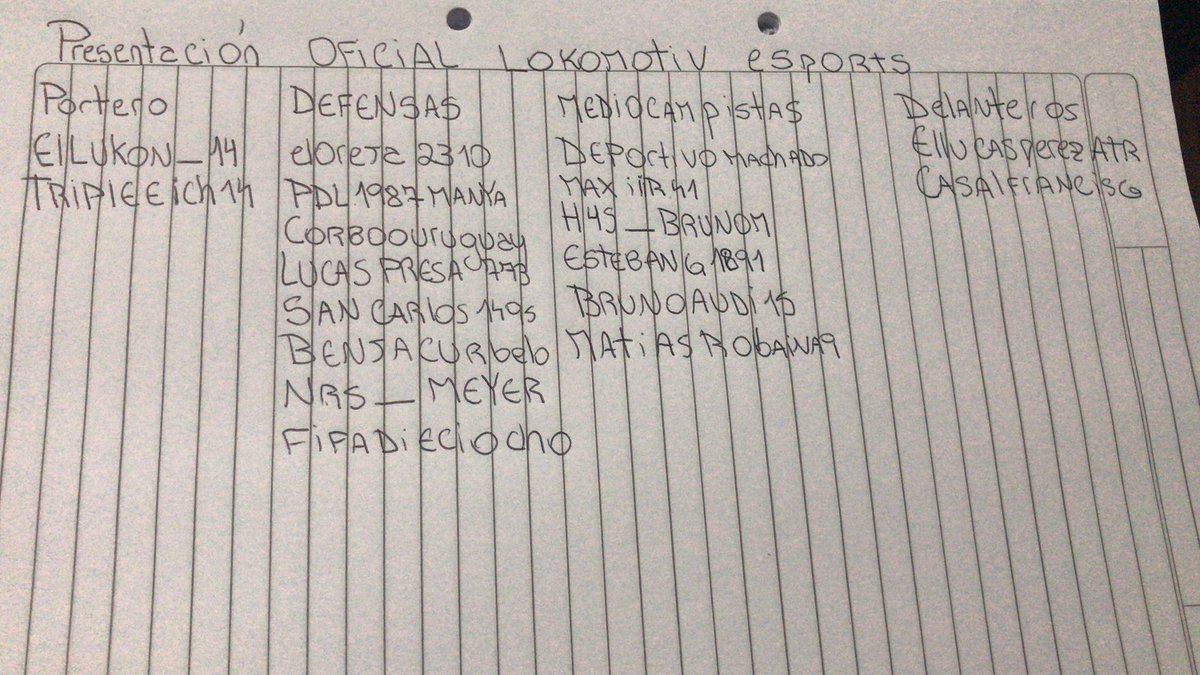 Presentación OFICIAL LOKOMOTIV esports
Portero
EllUKON_14
TRIPIEEich14
DEFENSAS
eloreja 2310
PDL1987MANYA
CORBOOUruguay
LUCAS PRESA 773
SAN CARLOS 1495
BENJACURbelo
NRS_MEYER
FiFADiECiOcho
MEDIOCAMpistAS
DEPORtiVOMACHADO
MAXiiR41
H4S_BRUNOM
ESTEBANG1891
BRUNOAUDi15
MAtiASRObAINA9
DelANteros
EllUCASperezATR
CASAlFRANCISCO